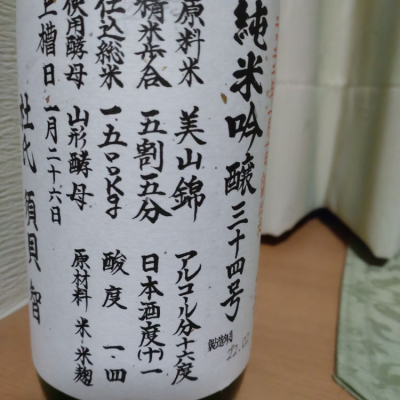 純米吟醸三十四号
原料米 美山錦 アルコール分十六度
精米歩合 五割五分 日本酒度(十)一
仕込総米 一五〇〇kg 酸度 一・四
使用酵母 山形酵母 原材料 米・米麹
上槽日 一月二十六日
杜氏 須貝智
製造年月
22.02